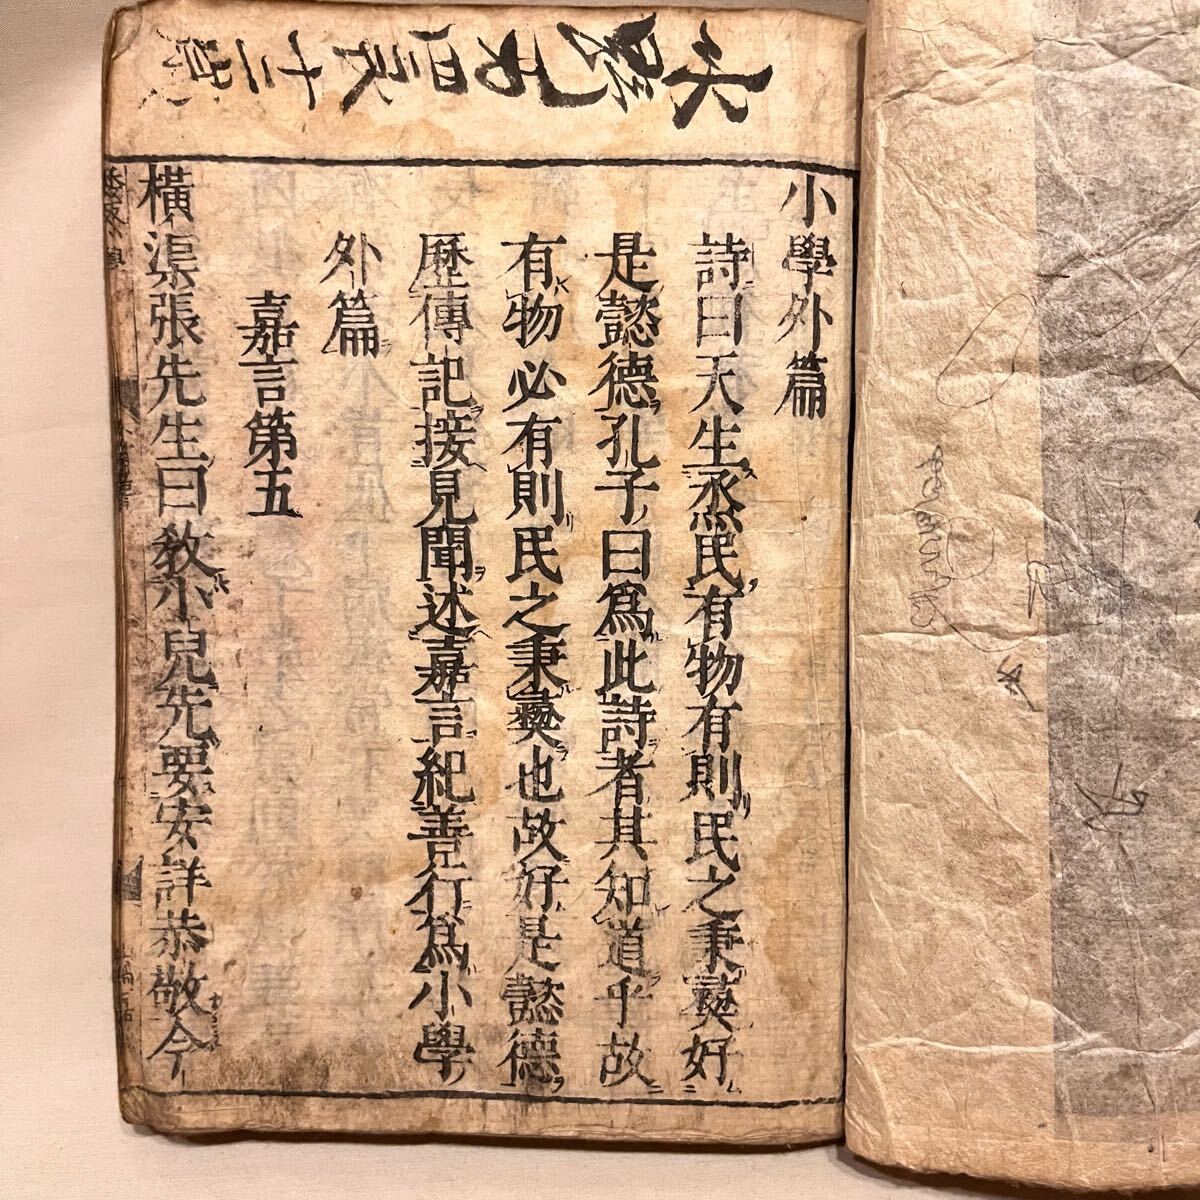 小學外篇
詩曰天生烝民有物有則民之秉彛好
是懿德孔子曰爲此詩者其知道乎故
有物必有則民之秉彛也故好是懿德
歷傳記接見聞述嘉言紀善行爲小學
外篇
嘉言第五
橫渠張先生曰敎小兒先要安詳恭敬今